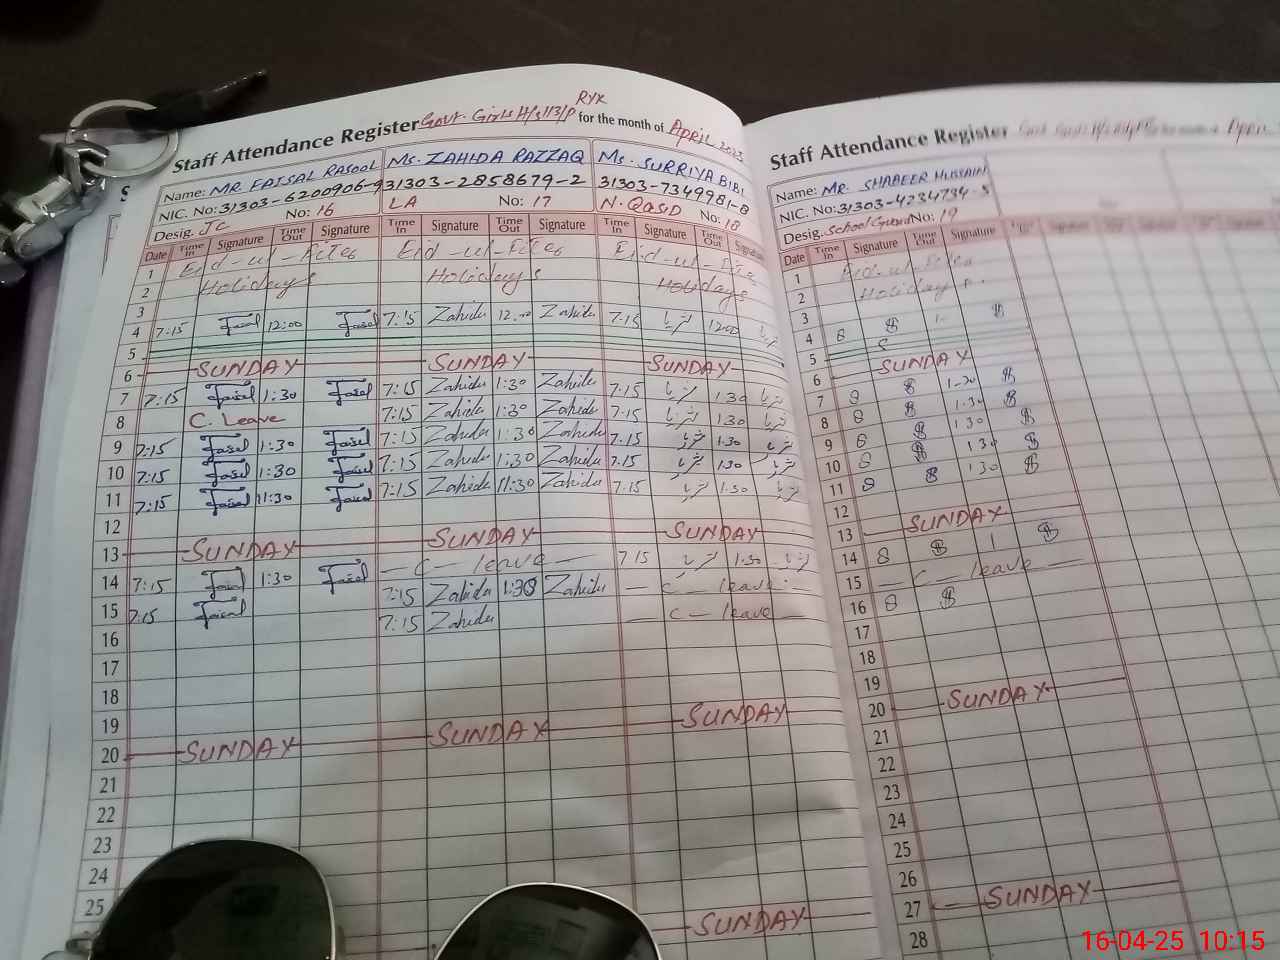 Staff Attendance Register Govt. Girls H/S 113/P RYK for the month of April 2025
Name: MR. FAISAL RASOOL Ms. ZAHIDA RAZZAQ Ms. SURRIYA BIBI
NIC. No: 31303-6200906-9 31303-2858679-2 31303-7349981-8
Desig. JC No: 16 LA No: 17 N. Qasid No: 18
Date Time In Signature Time Out Signature Time In Signature Time Out Signature Time In Signature Time Out Signature
1 Eid-ul-Fiter Eid-ul-Fiter Eid-ul-Fiter
2 Holidays Holidays Holidays
3
4 7:15 Faisal 12:00 Faisal 7:15 Zahida 12:00 Zahida 7:15 ثریا 12:00 ثریا
5
6 SUNDAY SUNDAY SUNDAY
7 7:15 Faisal 1:30 Faisal 7:15 Zahida 1:30 Zahida 7:15 ثریا 1:30 ثریا
8 C. Leave 7:15 Zahida 1:30 Zahida 7:15 ثریا 1:30 ثریا
9 7:15 Faisal 1:30 Faisal 7:15 Zahida 1:30 Zahida 7:15 ثریا 1:30 ثریا
10 7:15 Faisal 1:30 Faisal 7:15 Zahida 1:30 Zahida 7:15 ثریا 1:30 ثریا
11 7:15 Faisal 11:30 Faisal 7:15 Zahida 11:30 Zahida 7:15 ثریا 1:30 ثریا
12
13 SUNDAY SUNDAY SUNDAY
14 7:15 Faisal 1:30 Faisal — C — leave — 7:15 ثریا 1:30 ثریا
15 7:15 Faisal 7:15 Zahida 1:30 Zahida — C — leave —
16 7:15 Zahida — C — leave —
17
18
19
20 SUNDAY SUNDAY SUNDAY
21
22
23
24
25
SUNDAY
Staff Attendance Register April
Name: MR. SHABEER HUSSAIN
NIC. No: 31303-4234734-5
Desig. School Guard No: 19
Date Time In Signature Time Out Signature
1 Eid-ul-Fiter
2 Holidays.
3
4 8
5
6 SUNDAY
7 8 1-30
8 8 1.30
9 8 1 30
10 8 1 30
11 8 1 30
12
13 SUNDAY
14 8 1
15 — C — leave —
16 8
17
18
19
20 SUNDAY
21
22
23
24
25
26
27 SUNDAY
28
16-04-25 10:15